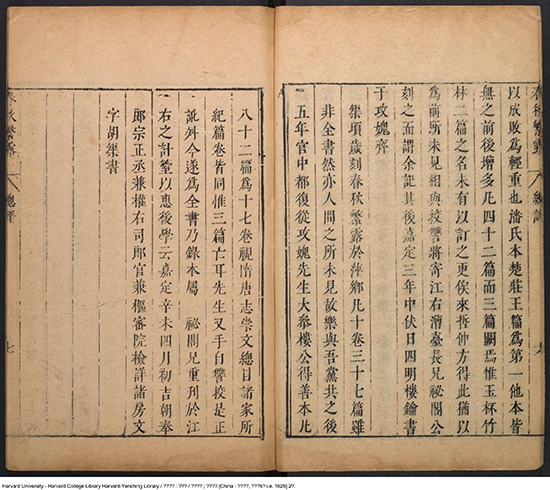 以成敗爲輕重也潘氏本楚莊王篇爲第一他本皆
無之前後增多凡四十二篇而三篇闕焉惟玉杯竹
林二篇之名未有以訂之更俟來哲仲方得此猶以
爲前所未見相與校讐將寄江右漕臺長兄祕閣公
刻之而謂余記其後嘉定三年中伏日四明樓鑰書
于攻媿齊
榘項歲刻春秋繁露於萍鄉凡十卷三十七篇雖
非全書然亦人間之所未見故樂與吾黨共之後
五年官中都復從攻媿先生大參樓公得善本凡
春秋繁露
總評
六
八十二篇爲十七卷視隋唐志崇文總目諸家所
紀篇卷皆同惟三篇亡耳先生又手自讐校是正
訛舛今遂爲全書乃錄本屬 祕閣兄重刊於江
右之計臺以惠後學云嘉定辛未四月初吉朝奉
郎宗正丞兼權右司郎官兼樞密院檢詳諸房文
字胡榘書
春秋繁露
總評
七
Harvard University - Harvard College Library Harvard-Yenching Library / ???? : ??? / ???? ; ???? [China : ????, ???5? i.e. 1625] 2?.